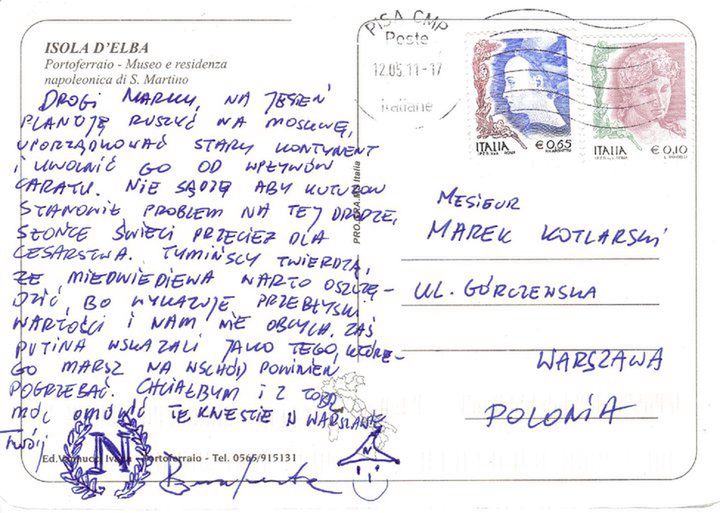 ISOLA D'ELBA
Portoferraio - Museo e residenza
napoleonica di S. Martino
DROGI MARKU, NA JESIEŃ
PLANUJĘ RUSZYĆ NA MOSKWĘ,
UPORZĄDKOWAĆ STARY KONTYNENT
I UWOLNIĆ GO OD WPŁYWÓW
CARATU. NIE SĄDZĘ ABY KUTUZOW
STANOWIŁ PROBLEM NA TEJ DRODZE,
SŁOŃCE ŚWIECI PRZECIEŻ DLA
CESARSTWA. TYMIŃSCY TWIERDZĄ,
ŻE MIEDWIEDIEWA WARTO OSZCZĘ-
DZIĆ, BO WYKAZUJE PRZEBŁYSKI
WARTOŚCI I NAM NIE OBCYCH. ZAŚ
PUTINA WSKAZALI JAKO TEGO, KTÓRE-
GO MARSZ NA WSCHÓD POWINIEN
POGRZEBAĆ. CHCIAŁBYM I Z TOBĄ
MÓC OMÓWIĆ TE KWESTIE W WARSZAWIE
Twój
N
Bonaparte
Portoferraio - Tel. 0565/915131
PISA CMP
Poste
12.05.11-17
Italiane
ITALIA
€ 0,65
ITALIA
€ 0,10
MESIEUR
MAREK KOTLARSKI
UL. GÓRCZEWSKA
WARSZAWA
POLONIA